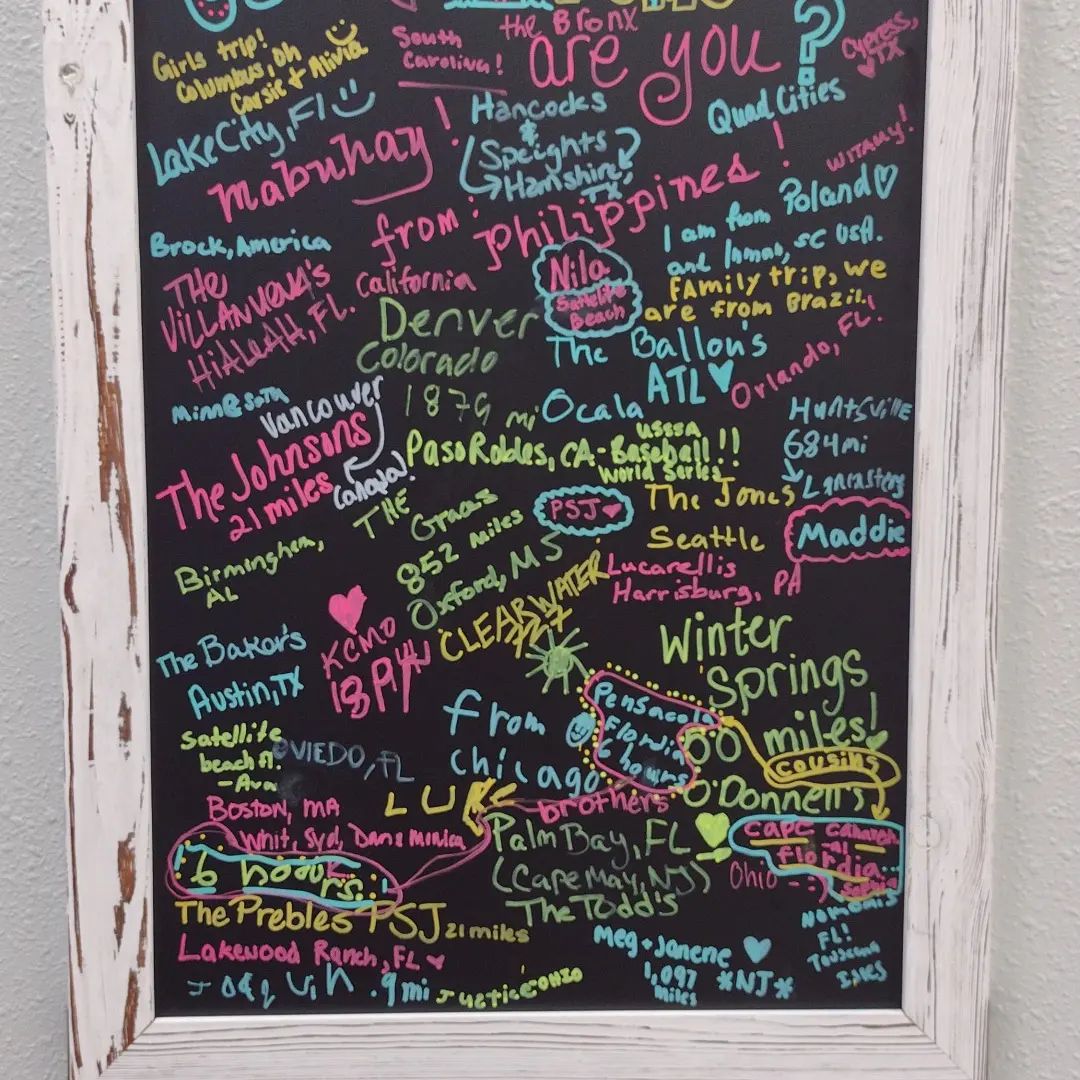 the Bronx
are you ?
Girls trip!
Columbus, Oh
Carsie & Alivia
South
Carolina!
Cypress,
TX
Lake City, Fl
Hancocks
&
Speights
Hamshire,
TX
Quad Cities
Mabuhay!
from:
philippines!
WITAMY!
I am from Poland
and Inman, SC USA.
Brock, America
THE
VILLANUEVA'S
HiALeAH, FL.
California
Nila
Satellite
Beach
FAmily trip, we
are from Brazil.
Denver
Colorado
1879 mi
The Ballon's
ATL
Orlando, FL!
Minnesota
Vancouver
Canada!
The Johnsons
21 miles
Ocala
Huntsville
684mi
Lancasters
Paso Robles, CA - Baseball!!
USSSA
World Series
THE
Graces
852 miles
Oxford, MS
PSJ
The Jones
Seattle
Maddie
Birmingham,
AL
Lucarellis
Harrisburg, PA
CLEARWATER
727
KCMO
The Baker's
Austin, TX
Winter
Springs
miles!
from
Chicago
Pensacola
Flordia
6 hours
cousins
Satellite
beach fl.
- Ava
OVIEDO, FL
O'Donnell's
BOSTON, MA
Whit, Syd, Dan & Monica
LUKE
brothers
6 hours.
Palm Bay, FL
(Cape May, NJ)
The Todd's
Cape Canaveral
flordia
Sophia
Ohio - :)
The Prebles PSJ 21 miles
Lakewood Ranch, FL
Meg + Janene
1,097
miles
*NJ*
FL!
.9 mi
Justice OHIO